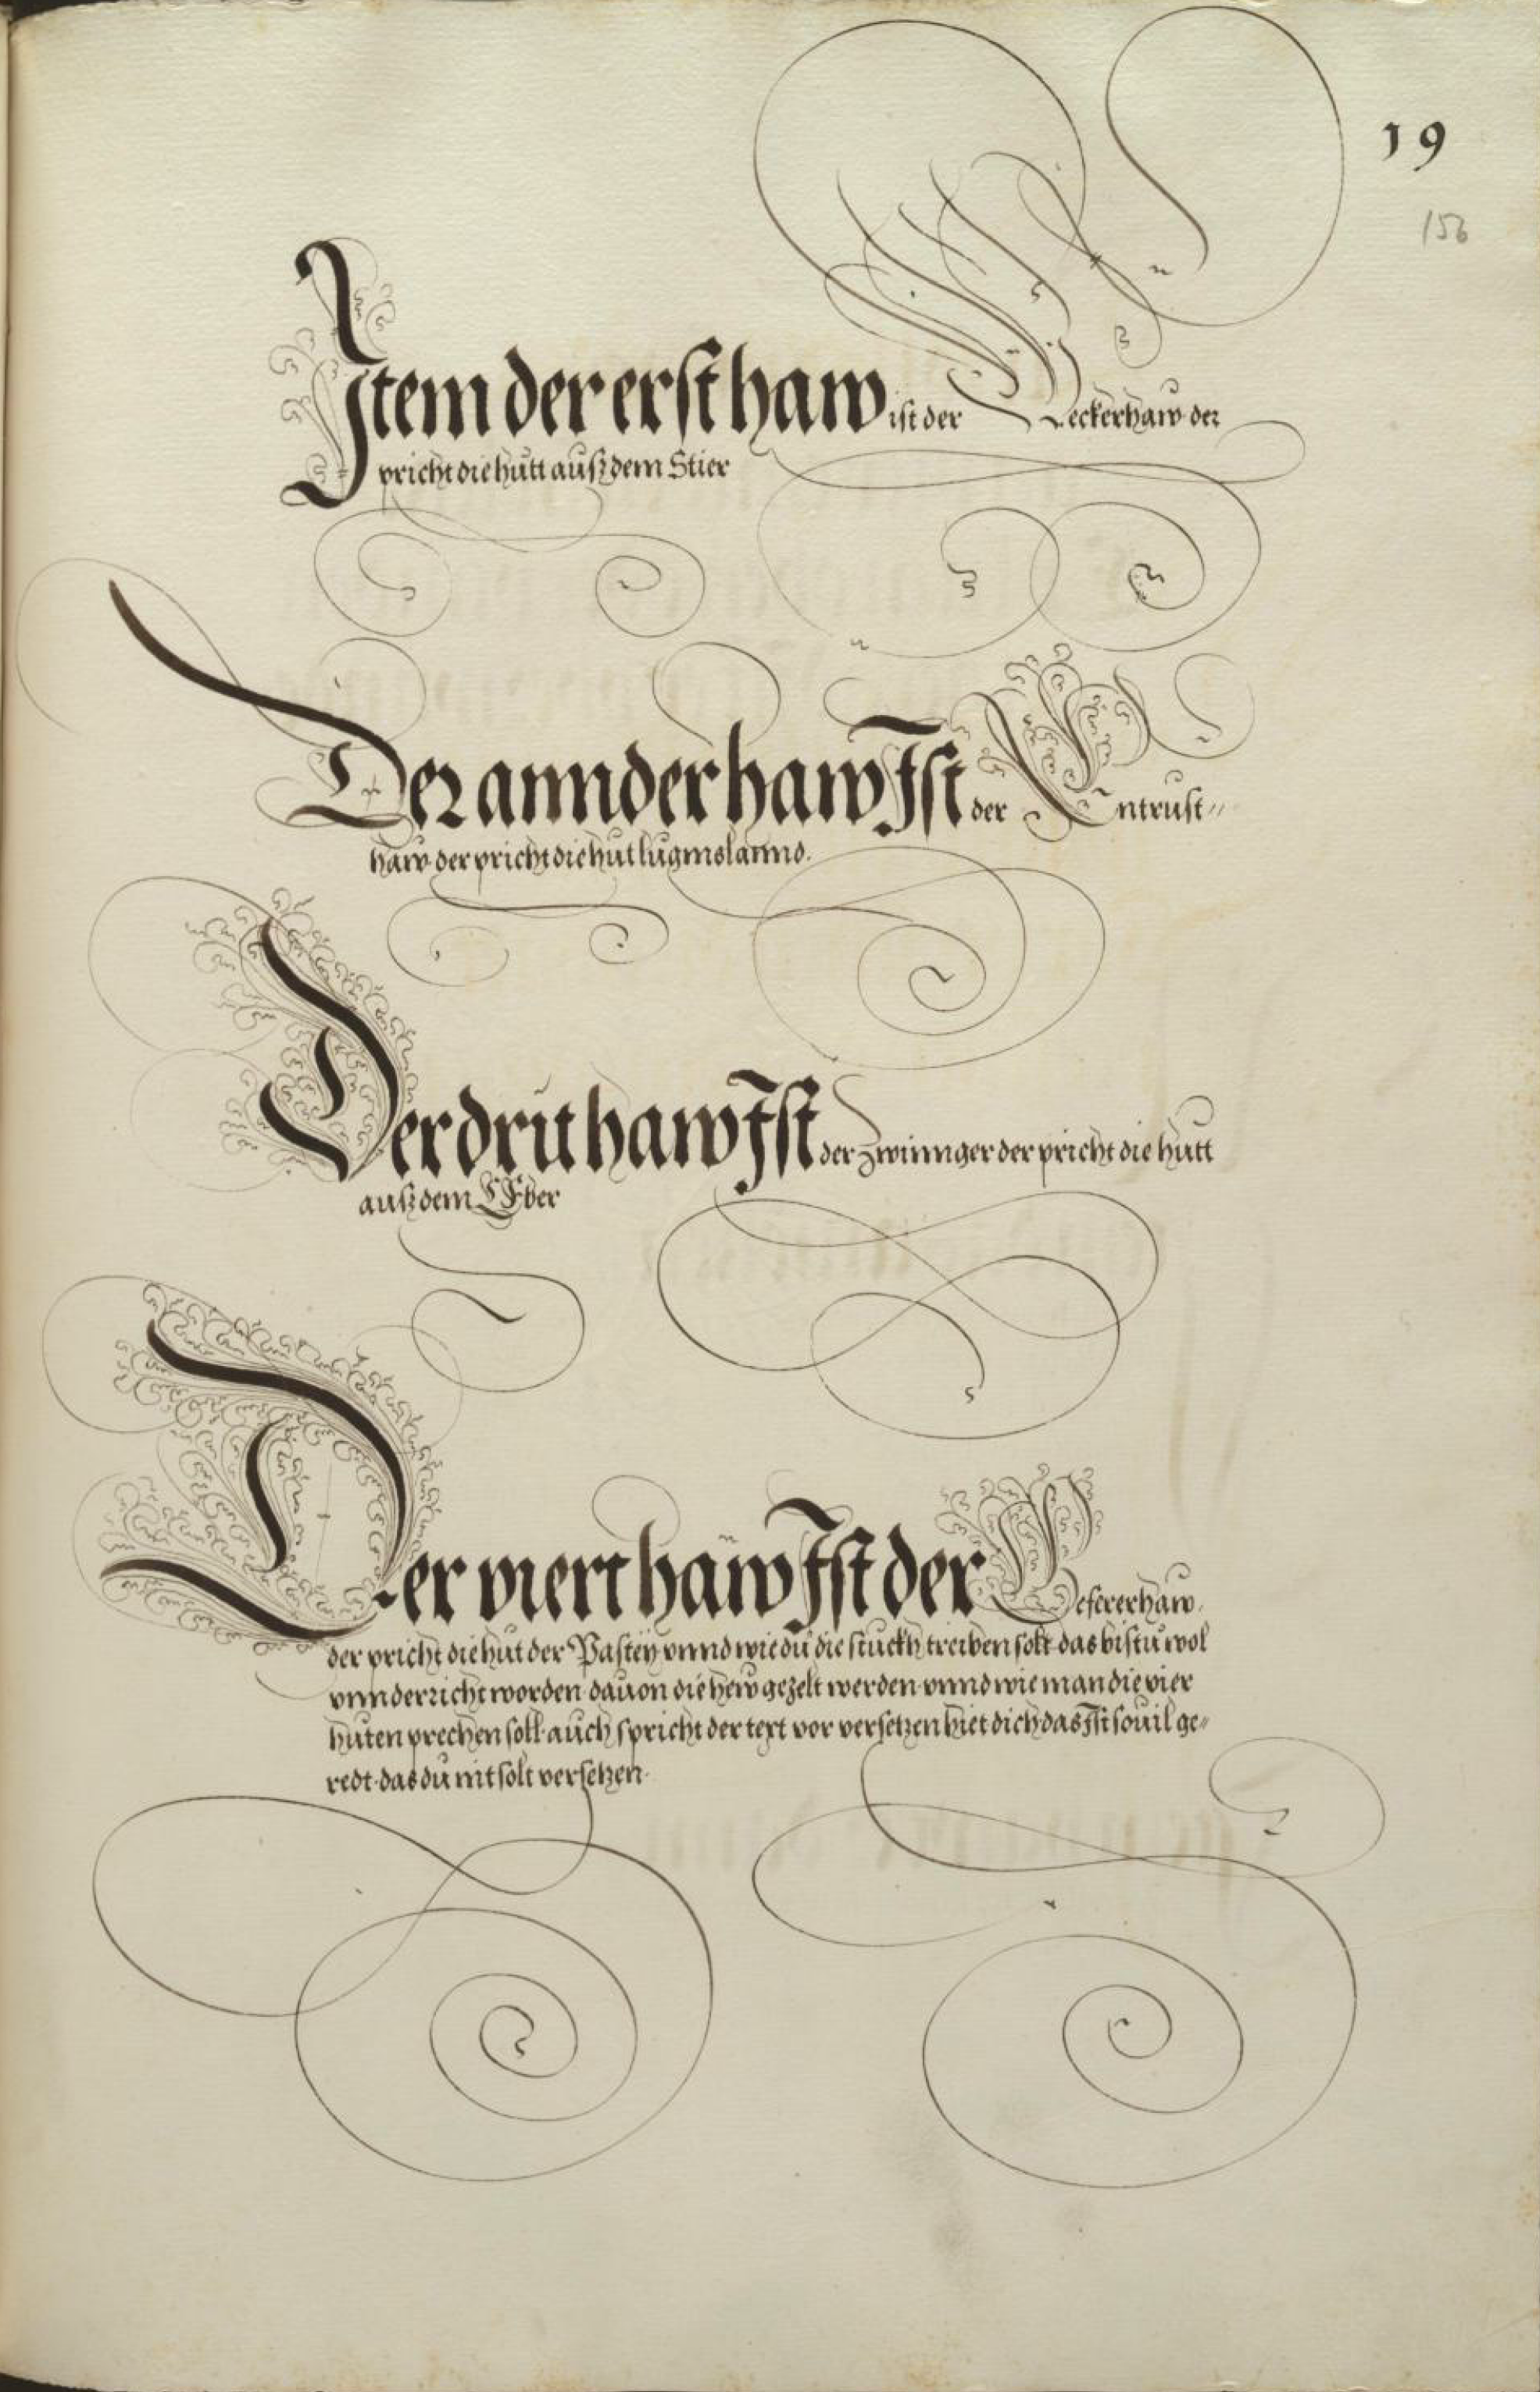 19
156
Item der erst haw ist der Weckerhaw der
pricht die hutt außdem Stier
Der annder haw Ist der Entrust„
haw der pricht die hut luginslannd.
Der drit haw Ist der Zwinnger der pricht die hutt
außdem Eber
Der viert haw Ist der Gefererhaw.
der pricht die hut der Pasteÿ vnnd wie du die stuckh treiben solt das bistu wol
vnnderricht worden dauon die hew gezelt werden vnnd wie man die vier
huten prechen soll auch spricht der text vor versetzen hiet dich das Ist souil ge„
redt das du nit solt versetzen.